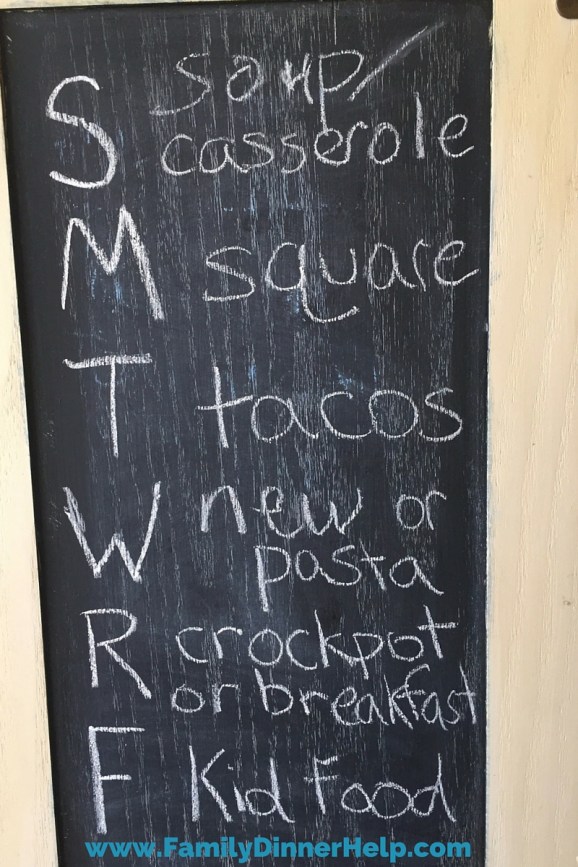 S soup/
casserole
M square
T tacos
W new or
pasta
R crockpot
or breakfast
F Kid Food
www.FamilyDinnerHelp.com